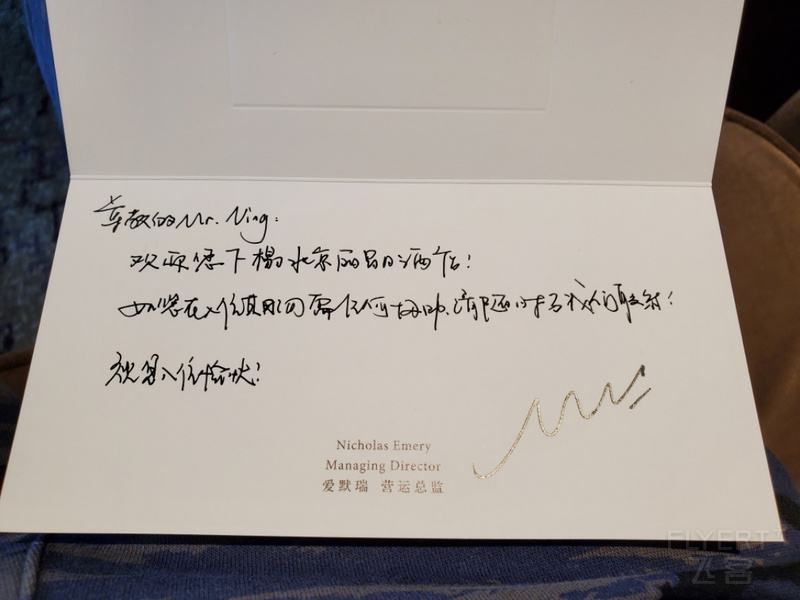 尊敬的Mr. Ning:
欢迎您下榻北京丽晶酒店!
如您在入住其间如需任何协助,请随时与我们联络!
祝您入住愉快!
Nicholas Emery
Managing Director
爱默瑞 营运总监
FLYERT
飞客